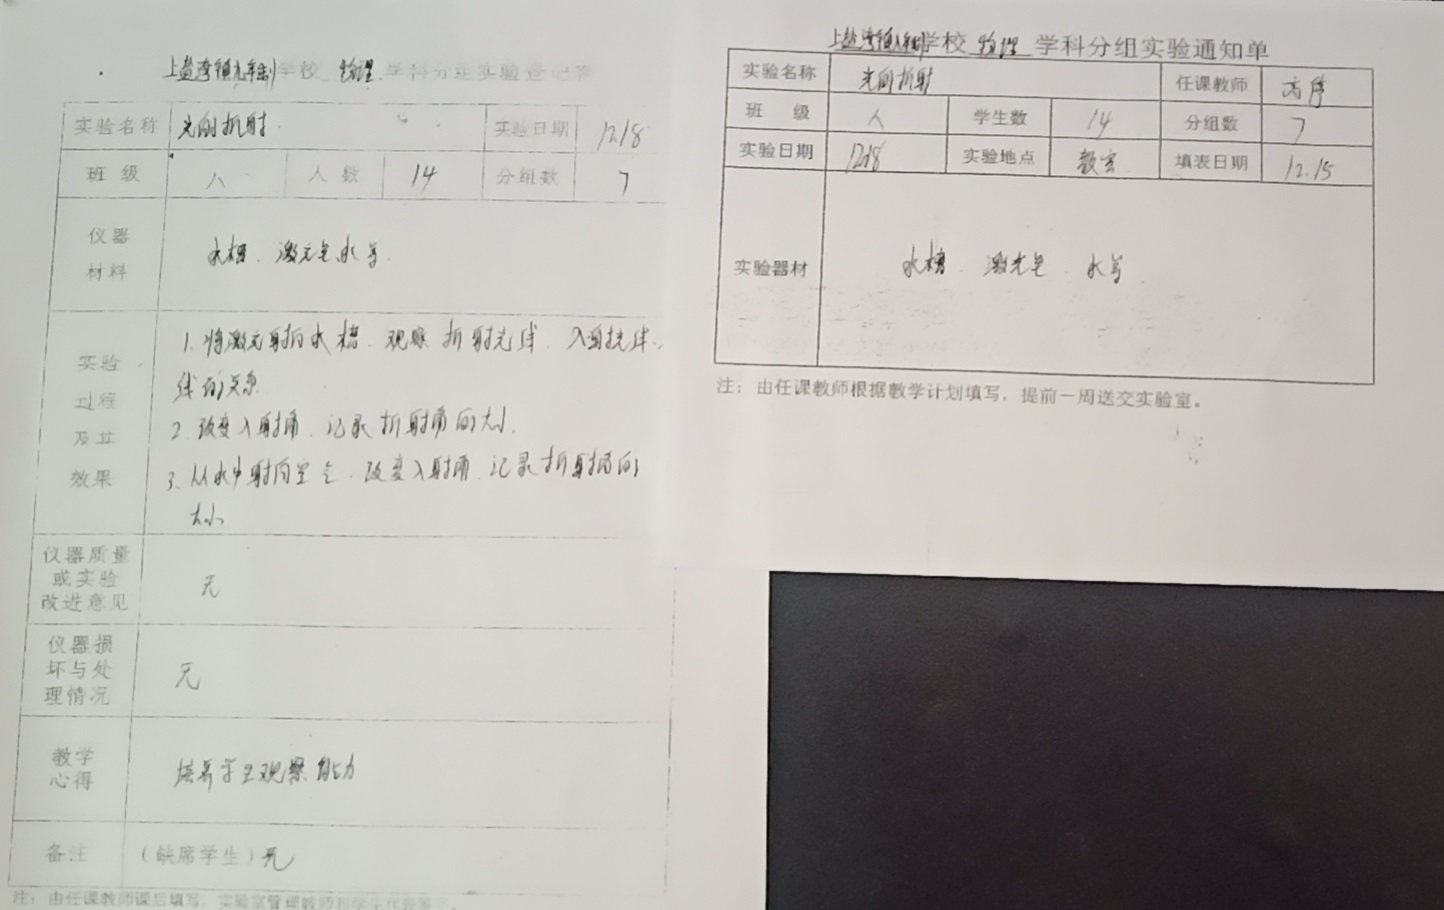 上盐湾镇九年制学校 物理 学科分组实验登记表
实验名称 光的折射 实验日期 12.18
班级 八 人数 14 分组数 7
仪器
材料
水槽、激光笔、水等.
实验
过程
及其
效果
1. 将激光射向水槽、观察折射光线、入射光线、
线的关系
2. 改变入射角、记录折射角的大小.
3. 从水中射向空气、改变入射角、记录折射角的
大小
仪器质量
或实验
改进意见
无
仪器损
坏与处
理情况
无
教学
心得
培养学生观察能力
备注 (缺席学生) 无
注: 由任课教师课后填写, 实验室管理教师和学生代表签字。
上盐湾镇九年制学校 物理 学科分组实验通知单
实验名称 光的折射 任课教师
班 级 八 学生数 14 分组数 7
实验日期 12.18 实验地点 教室 填表日期 12.15
实验器材 水槽、激光笔、水等
注: 由任课教师根据教学计划填写, 提前一周送交实验室。